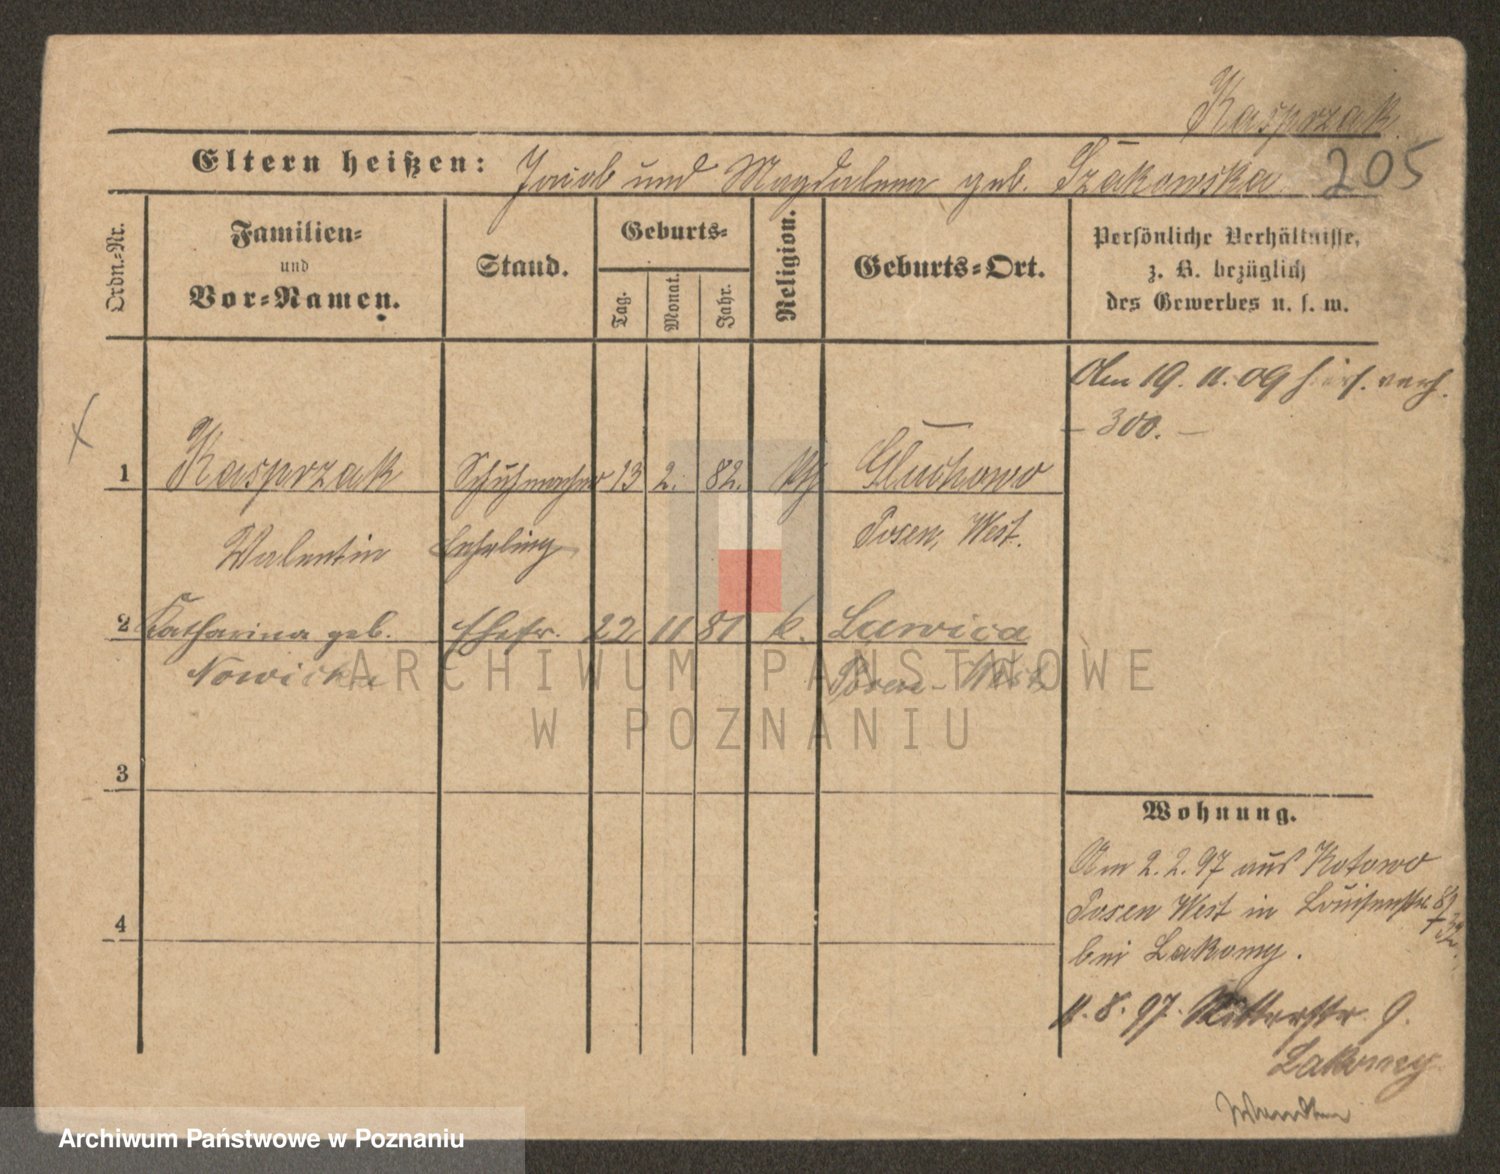 Kasprzak.
Eltern heißen: Jacob und Magdalena geb. Szakowska
205
Ordn.-Nr.
Familien-
und
Vor-Namen.
Stand.
Geburts-
Tag.
Monat.
Jahr.
Religion.
Geburts-Ort.
Persönliche Verhältnisse,
z. B. bezüglich
des Gewerbes u. s. w.
Am 19. 11. 09 hier verh.
- 300. -
1 Kasprzak Schuhmacher 13 2. 82. kth Gluchowo
Valentin Lehrling Posen, West.
2 Katharina geb. Ehefr. 22 11 81 k. Lawica
Nowicka Posen-West
3
Wohnung.
Am 2. 2. 97 aus Kotowo
Posen West in Louisenstr.
bei Lakomy.
4
11. 8. 97. Ritterstr. 9.
Lakomy
ARCHIWUM PAŃSTWOWE
W POZNANIU
Archiwum Państwowe w Poznaniu